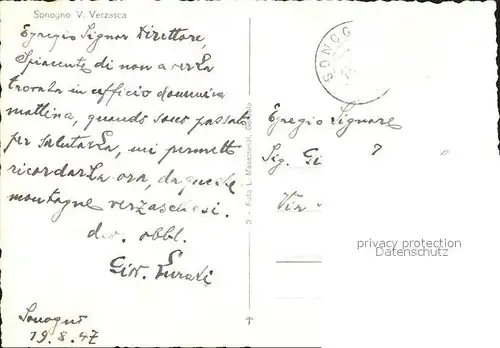 Sonogno V. Verzasca
Egregio Signor Direttore,
Spiacente di non averLa
trovata in ufficio domenica
mattina, quando sono passato
per salutarLa, mi permetto
ricordarLa ora, da queste
montagne verzaschesi.
dev. obbl.
Giov.
Sonogno
19.8.47
3 - Foto L.
SONOG
Egregio Signore
Sig. Gi
Via
privacy protection
Datenschutz